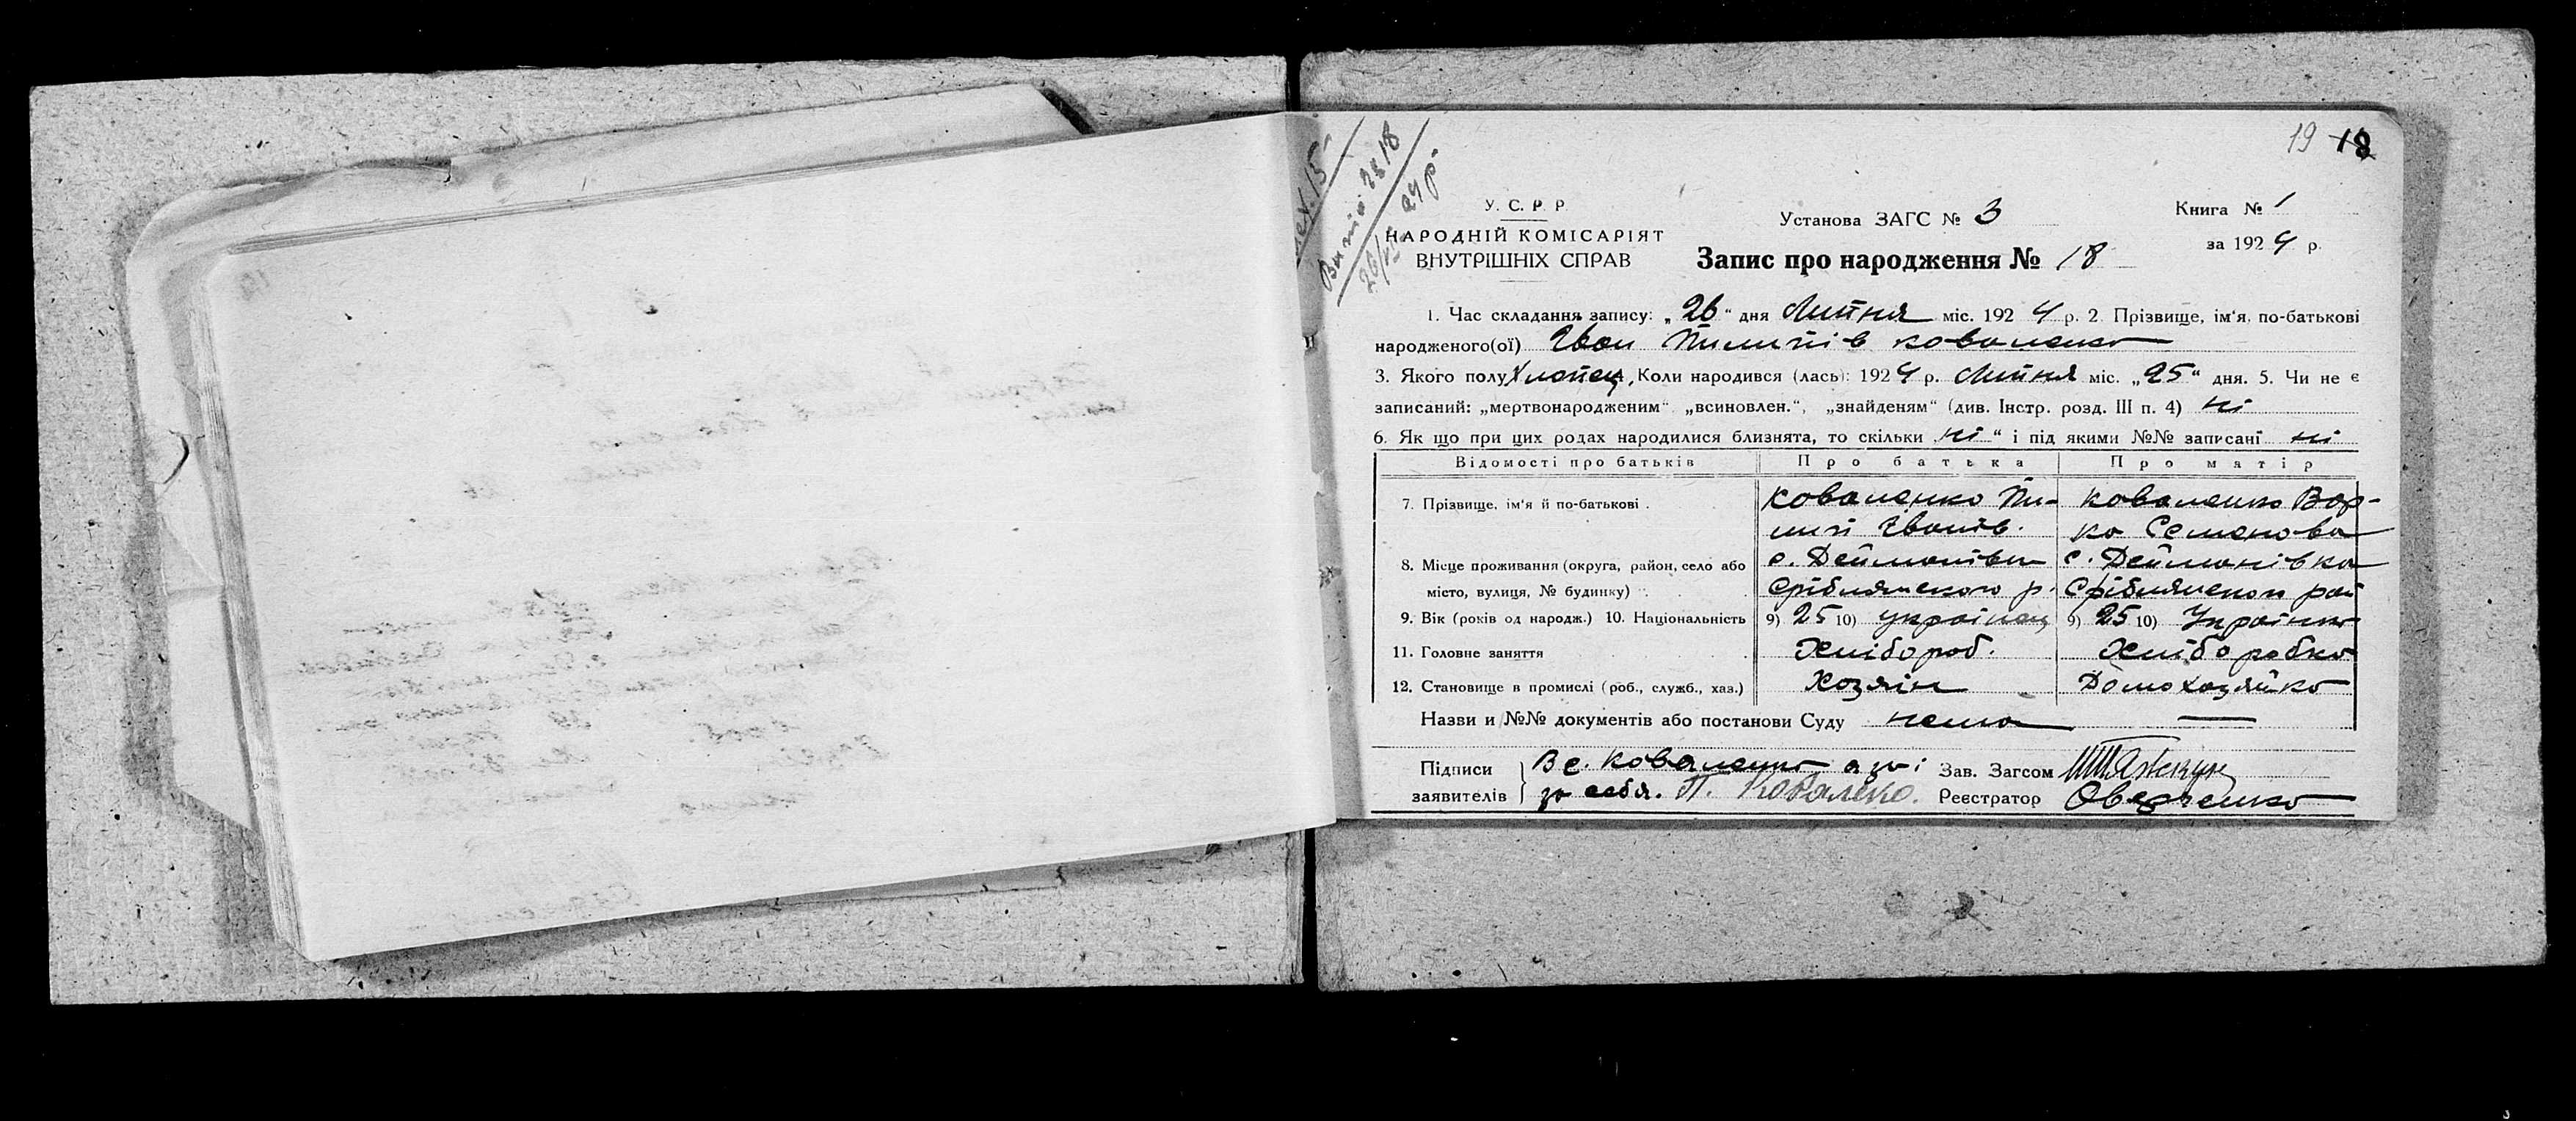 19 18
Випис за 18
26/VII 24 р
У. С. Р. Р.
Установа ЗАГС № 3
Книга № 1
НАРОДНІЙ КОМІСАРІЯТ
ВНУТРІШНІХ СПРАВ
за 1924 р.
Запис про народження № 18
1. Час складання запису: „26“ дня Липня міс. 1924 р. 2. Прізвище, ім'я, по-батькові
народженого(ої) Іван Пилипів Коваленко
3. Якого полу Хлопец, Коли народився (лась): 1924 р. Липня міс. „25“ дня. 5. Чи не є
записаний: „мертвонародженим“ „всиновлен.“, „знайденям“ (див. Інстр. розд. III п. 4) ні
6. Як що при цих родах народилися близнята, то скільки „ні“ і під якими №№ записані ні
Відомості про батьків Про батька Про матір
7. Прізвище, ім'я й по-батькові . Коваленко Пи- Коваленко Вар-
лип Іванів. ка Семенова
8. Місце проживання (округа, район, село або с. Дейманівка с. Дейманівка
місто, вулиця, № будинку) . Срібнянського р. Срібнянськ рай
9. Вік (років од народж.) 10. Національність 9) 25 10) українец 9) 25 10) Українка
11. Головне заняття Хлібороб. Хліборобка
12. Становище в промислі (роб., служб., хаз.) Хозяін Домохозяйка
Назви и №№ документів або постанови Суду нема —
Підписи В С. Коваленко а за і Зав. Загсом
заявителів за себя. П. Ковалеко. Реєстратор Оверченко